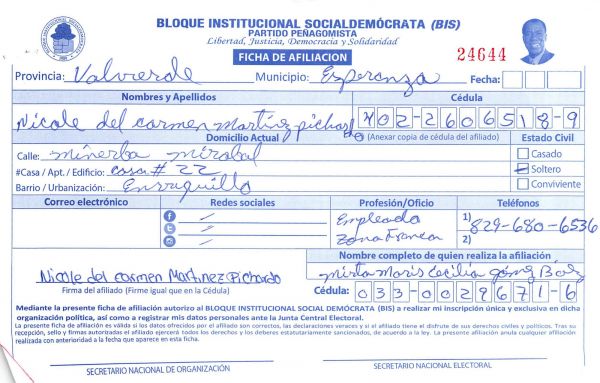 BLOQUE INSTITUCIONAL SOCIALDEMÓCRATA (BIS)
PARTIDO PEÑAGOMISTA
Libertad, Justicia, Democracia y Solidaridad
FICHA DE AFILIACION
24644
Provincia: Valverde Municipio: Esperanza Fecha:
Nombres y Apellidos Cédula
Nicole del carmen Martínez pichardo 402-2606518-9
Domicilio Actual (Anexar copia de cédula del afiliado) Estado Civil
Calle: Minerba Mirabal Casado
#Casa / Apt. / Edificio: casa # 22 Soltero
Barrio / Urbanización: Enriquillo Conviviente
Correo electrónico Redes sociales Profesión/Oficio Teléfonos
Empleada 1) 829-680-6536
Zona Franca 2)
Nombre completo de quien realiza la afiliación
Nicole del carmen Martinez Pichardo Mirta Maris Cecilia
Firma del afiliado (Firme igual que en la Cédula) Cédula: 033-0029671-6
Mediante la presente ficha de afiliación autorizo al BLOQUE INSTITUCIONAL SOCIAL DEMÓCRATA (BIS) a realizar mi inscripción única y exclusiva en dicha
organización política, así como a registrar mis datos personales ante la Junta Central Electoral.
La presente ficha de afiliación es válida si los datos ofrecidos por el afiliado son correctos, las declaraciones veraces y si el afiliado tiene el disfrute de sus derechos civiles y políticos. Tras su
recepción, sello y firmas autorizadas el afiliado ejercerá todos los derechos y los deberes estatutariamente sancionados, de acuerdo a la ley. La presente afiliación anula cualquier afiliación
realizada con anterioridad a la fecha que aparece en esta ficha.
SECRETARIO NACIONAL DE ORGANIZACIÓN SECRETARIO NACIONAL ELECTORAL